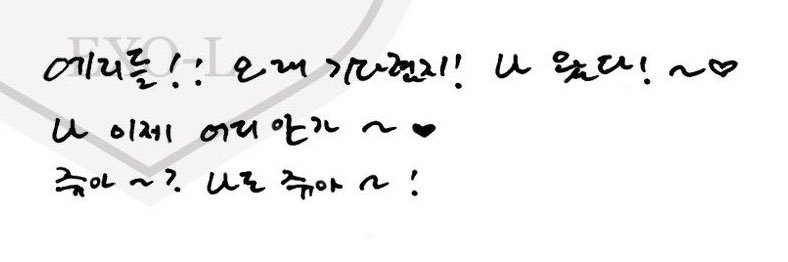 EXO-L
에리들!! 오래 기다렸지! 나 왔다! ~♡
나 이제 어디 안가 ~ ♥
쥬아~? 나도 쥬아~!